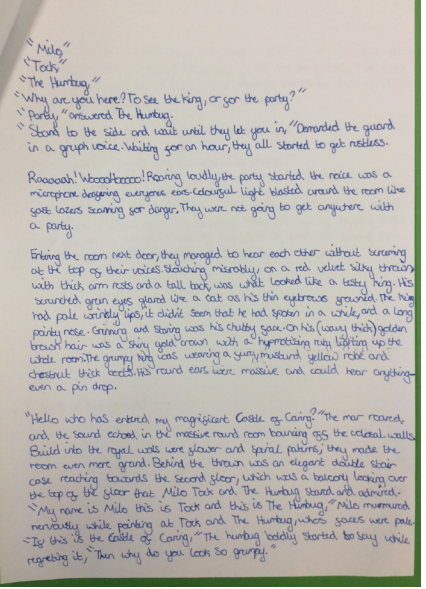 "Milo,"
"Tock,"
"The Humbug,"
"Why are you here? To see the king, or for the party?"
"Party," answered The Humbug.
"Stand to the side and wait until they let you in," Demanded the guard
in a gruph voice. Waiting for an hour, they all started to get restless.
Raaaaah! Woooohooooo! Roaring loudly, the party started the noice was a
microphone deafering everyones ears. Colourful light blasted around the room like
fast lazers scanning for danger. They were not going to get anywhere with
a party.
Entering the room next door, they managed to hear each other without screaming
at the top of their voices. Slouching misrobly, on a red velvet silky thrown
with thick arm rests and a tall back, was what looked like a tasty king. His
scrunched green eyes glared like a cat as his thin eyebrows frowned. The king
had pale wrinkly lips, it didn't seem that he had spoken in a while, and a long
pointy nose. Grinning and staring was his chubby face. On his (wavy thick) golden
brown hair was a shiny gold crown with a hypnotising ruby lighting up the
whole room. The grumpy king was wearing a fury, mustard yellow robe and
chestnut thick boots. His round ears were massive and could hear anything-
even a pin drop.
"Hello who has entered my magnificent Castle of Caring?" The man roared,
and the sound echoed in the massive round room bouncing off the colosal walls.
Build into the royal walls were flower and spiral patirns, they made the
room even more grand. Behind the thrown was an elegant double stair
case reaching towards the second floor, which was a balcony looking over
the top of the floor that Milo Tock and The Humbug stared and admired.
"My name is Milo this is Tock and this is The Humbug," Milo murmured
nervously while pointing at Tock and The Humbug, whos faces were pale.
"Is this the Castle of Caring," The humbug boldly started to say while
regreting it, "Then why do you look so grumpy."